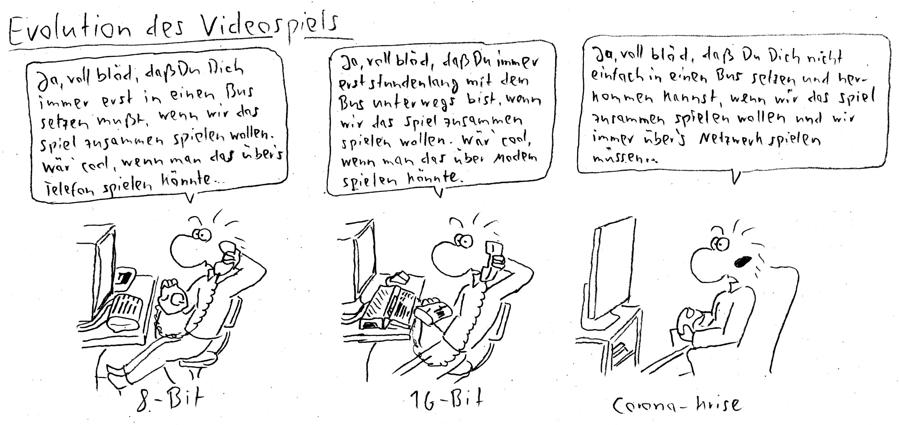 Evolution des Videospiels
Ja, voll blöd, daß Du Dich
immer erst in einen Bus
setzen mußt, wenn wir das
Spiel zusammen spielen wollen.
Wär' cool, wenn man das über's
Telefon spielen könnte...
Ja, voll blöd, daß Du immer
erst stundenlang mit dem
Bus unterwegs bist, wenn
wir das Spiel zusammen
spielen wollen. Wär' cool,
wenn man das über Modem
spielen könnte.
Ja, voll blöd, daß Du Dich nicht
einfach in einen Bus setzen und her-
kommen kannst, wenn wir das Spiel
zusammen spielen wollen und wir
immer über's Netzwerk spielen
müssen...
8-Bit
16-Bit
Corona-Krise